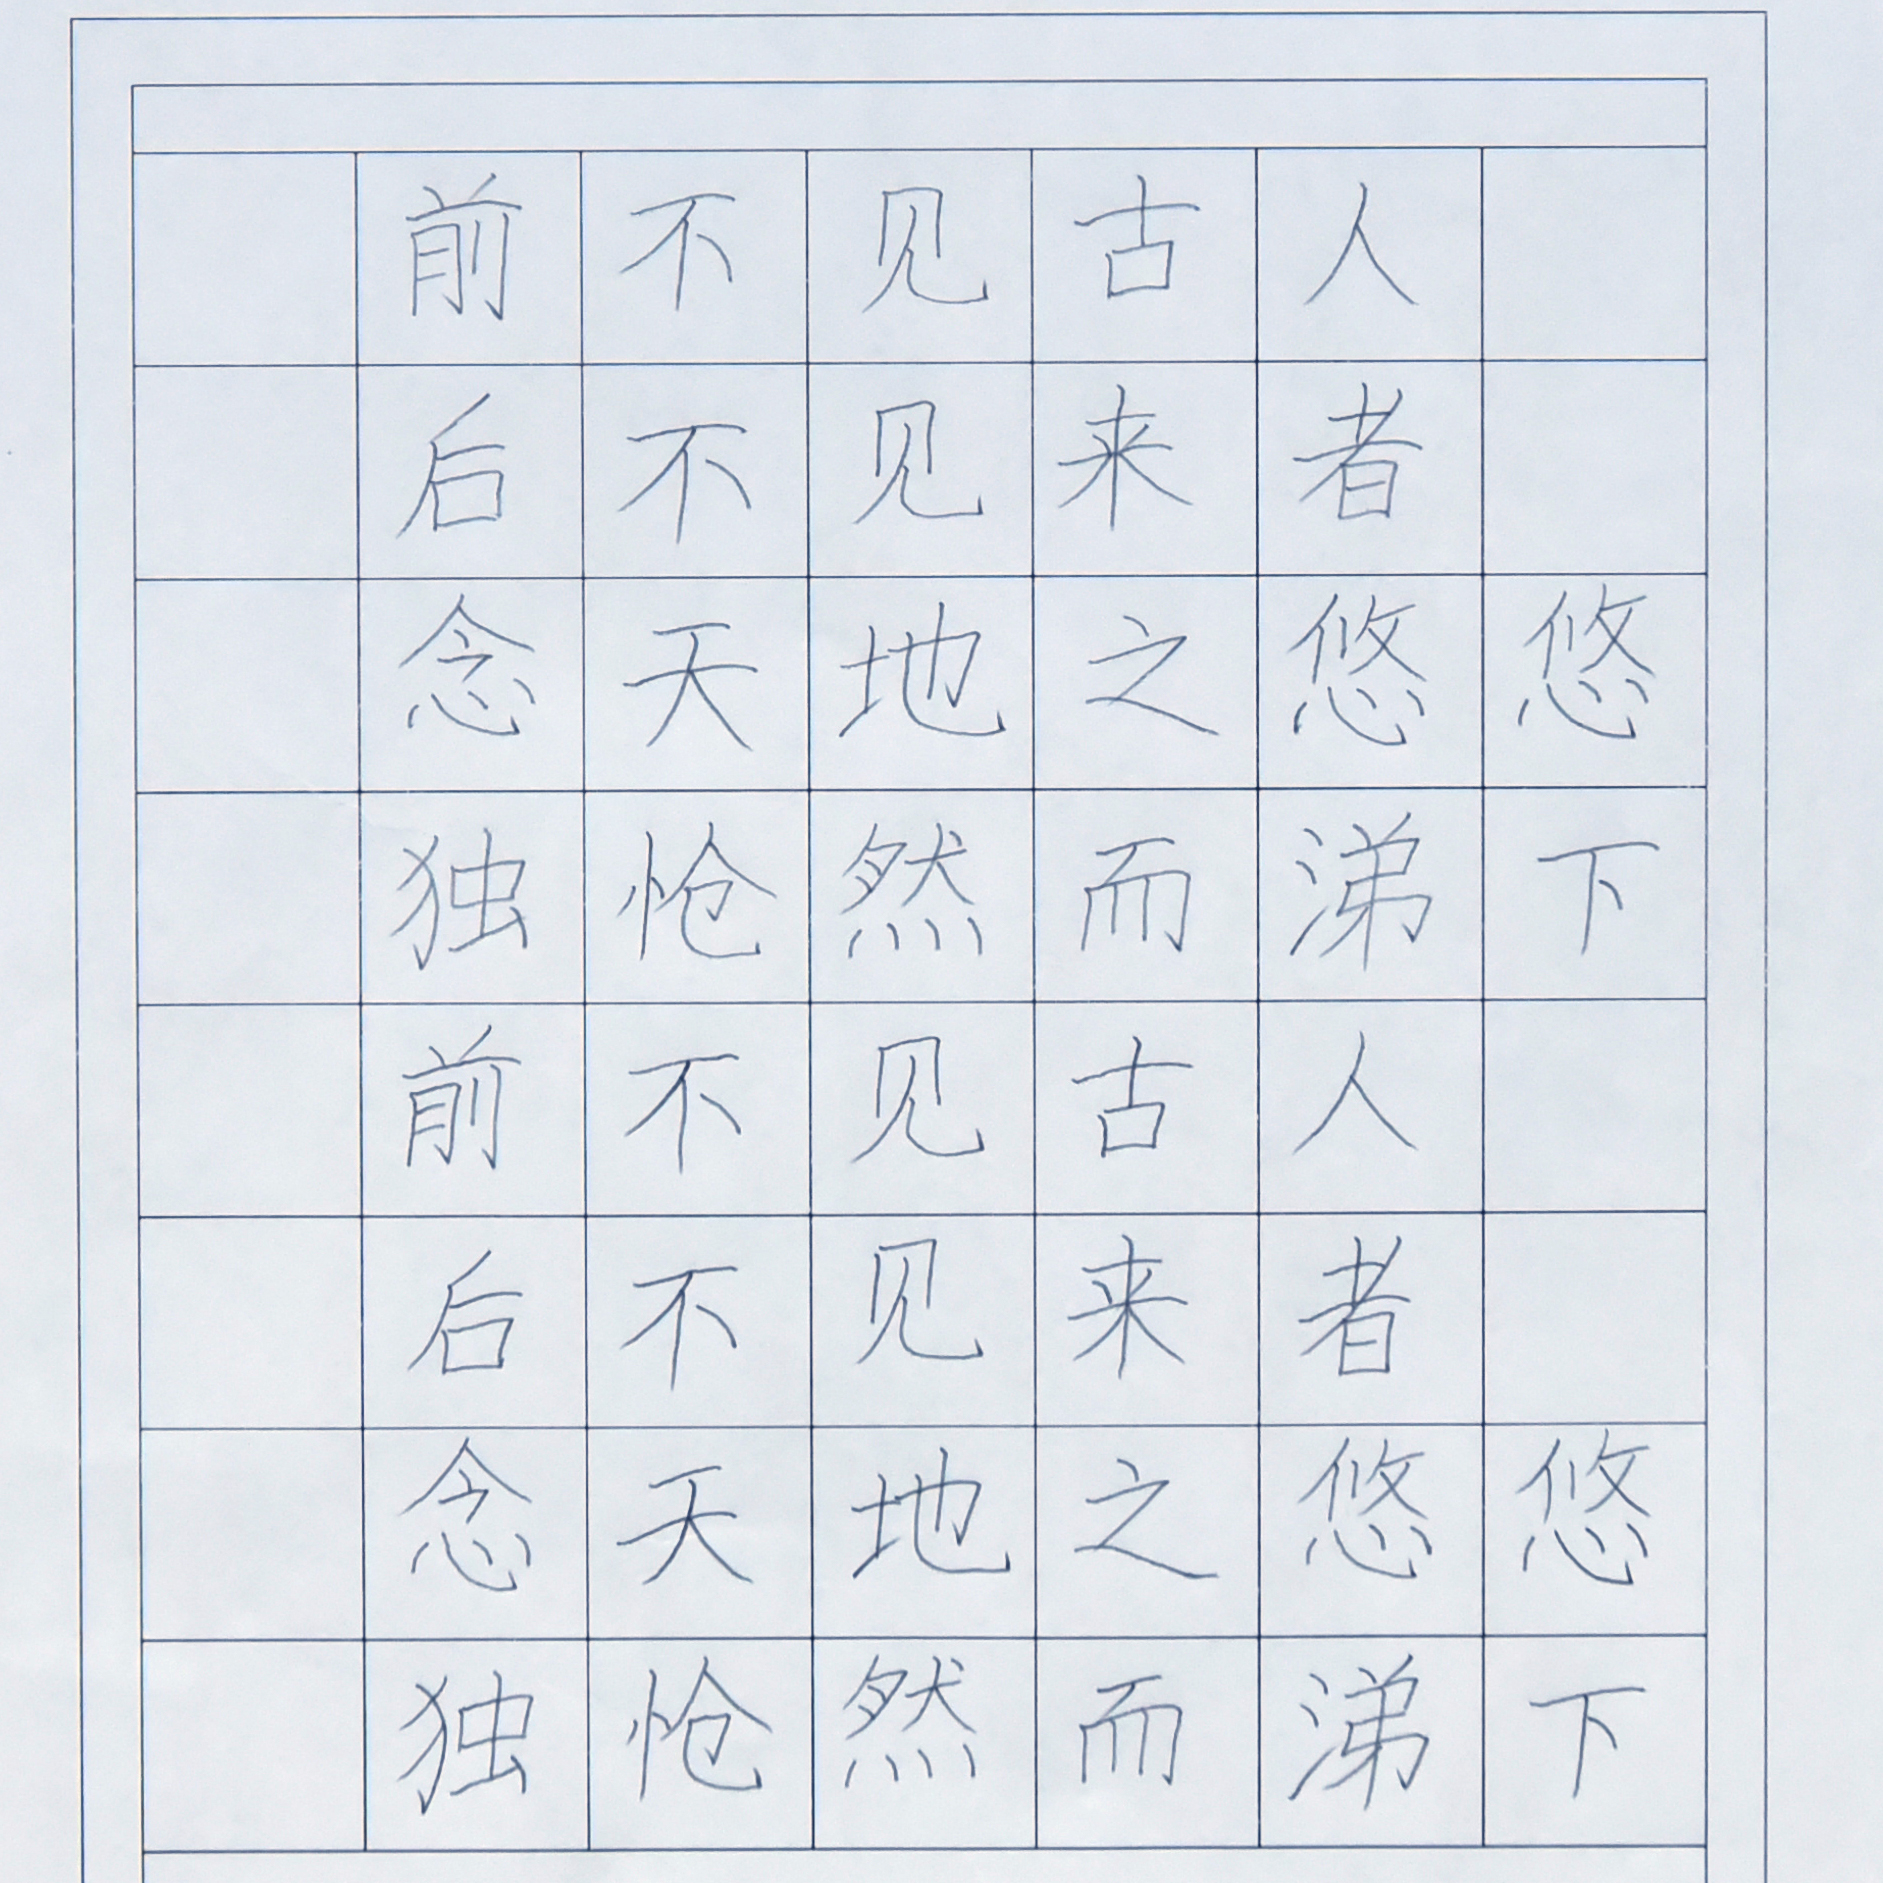 前不见古人
后不见来者
念天地之悠悠
独怆然而涕下
前不见古人
后不见来者
念天地之悠悠
独怆然而涕下